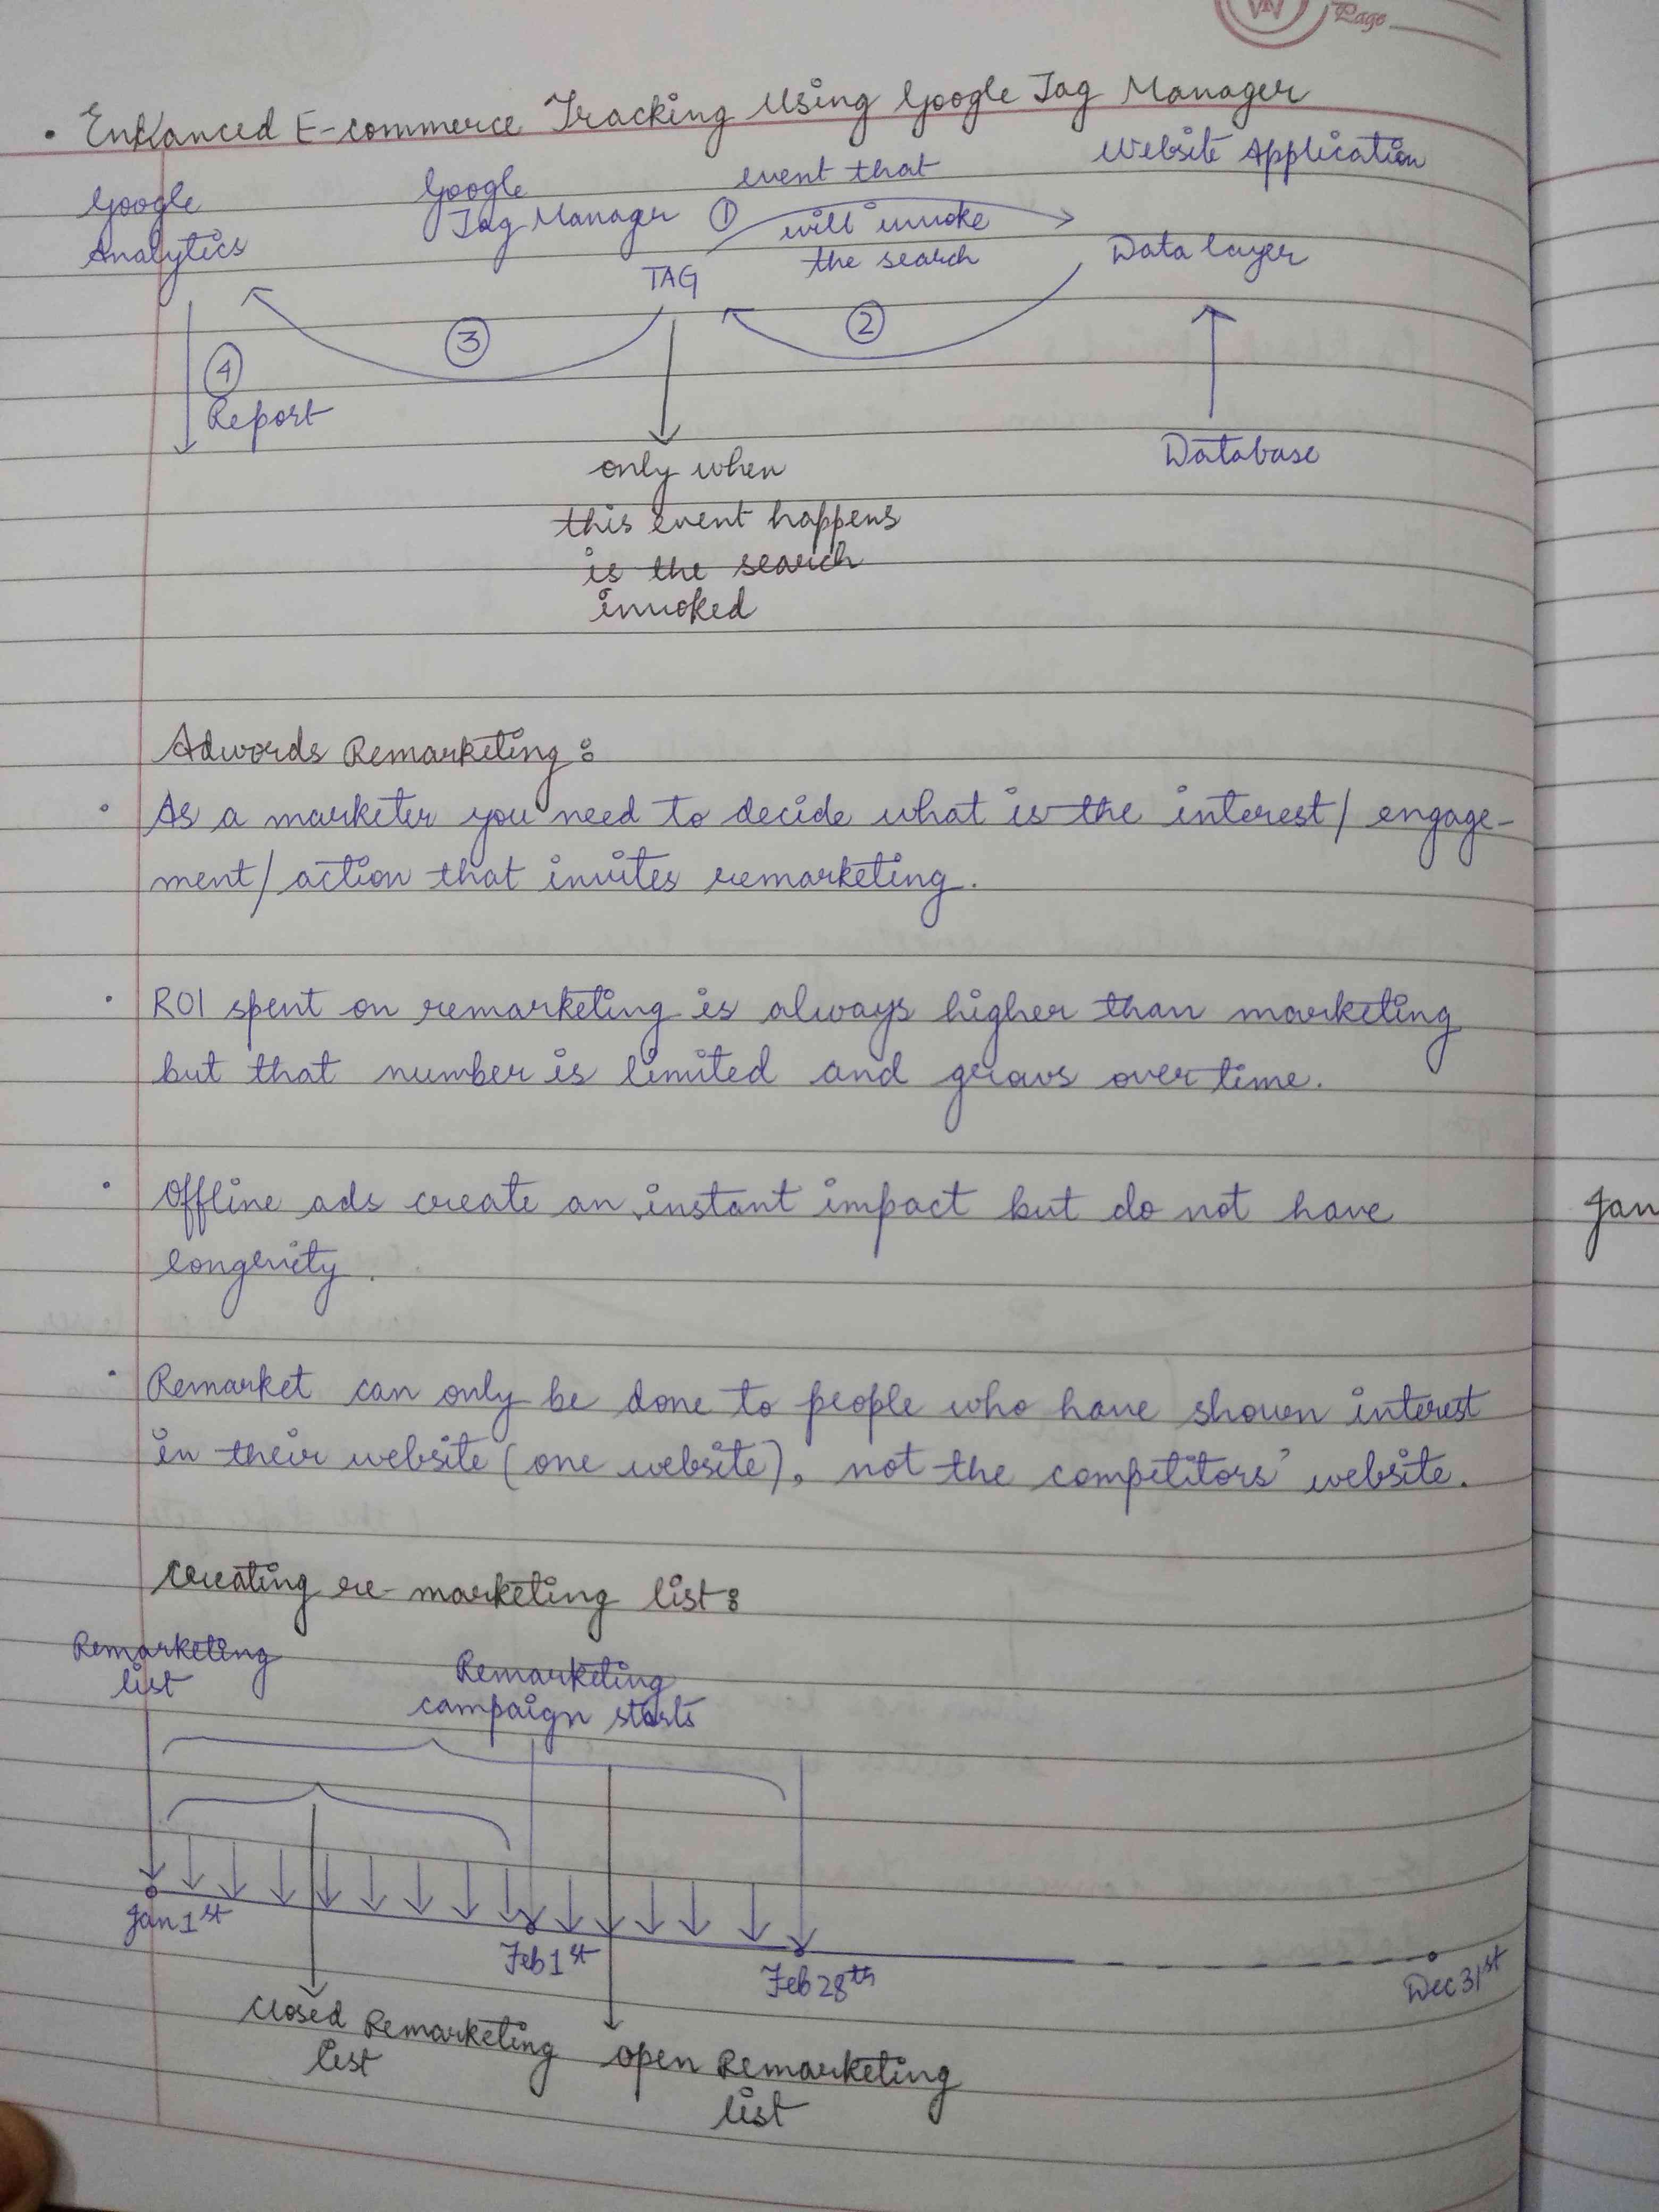 Page
• Enhanced E-commerce Tracking Using Google Tag Manager
Website Application
Google
Analytics
Google
Tag Manager
①
event that
will invoke
the search
Data layer
TAG
②
③
④
Report
Database
only when
this event happens
is the search
invoked
Adwords Remarketing:
• As a marketer you need to decide what is the interest/ engage-
ment/ action that invites remarketing.
• ROI spent on remarketing is always higher than marketing
but that number is limited and grows over time.
• Offline ads create an instant impact but do not have
longevity.
• Remarket can only be done to people who have shown interest
in their website (one website), not the competitors' website.
Creating re-marketing list:
Remarketing
list
Remarketing
campaign starts
Jan 1st
Feb 1st
Feb 28th
Dec 31st
Closed Remarketing
list
open Remarketing
list
Jan